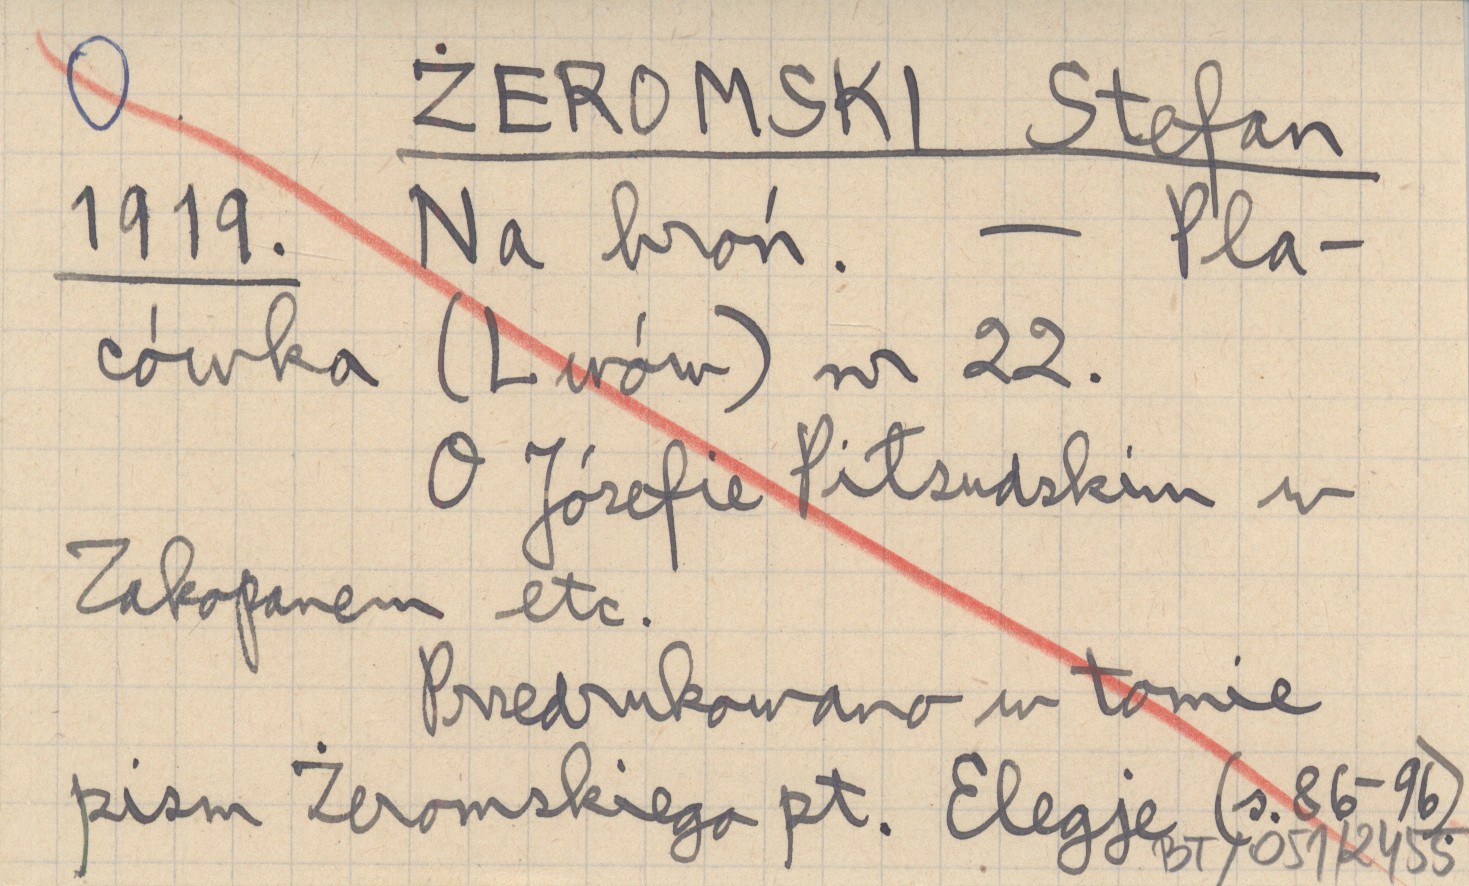 ŻEROMSKI Stefan
1919. Na broń. — Pla-
cówka (Lwów) nr 22.
O Józefie Piłsudskim w
Zakopanem etc.
Przedrukowano w tomie
pism Żeromskiego pt. Elegje (s. 86-96)
BT/051/2455